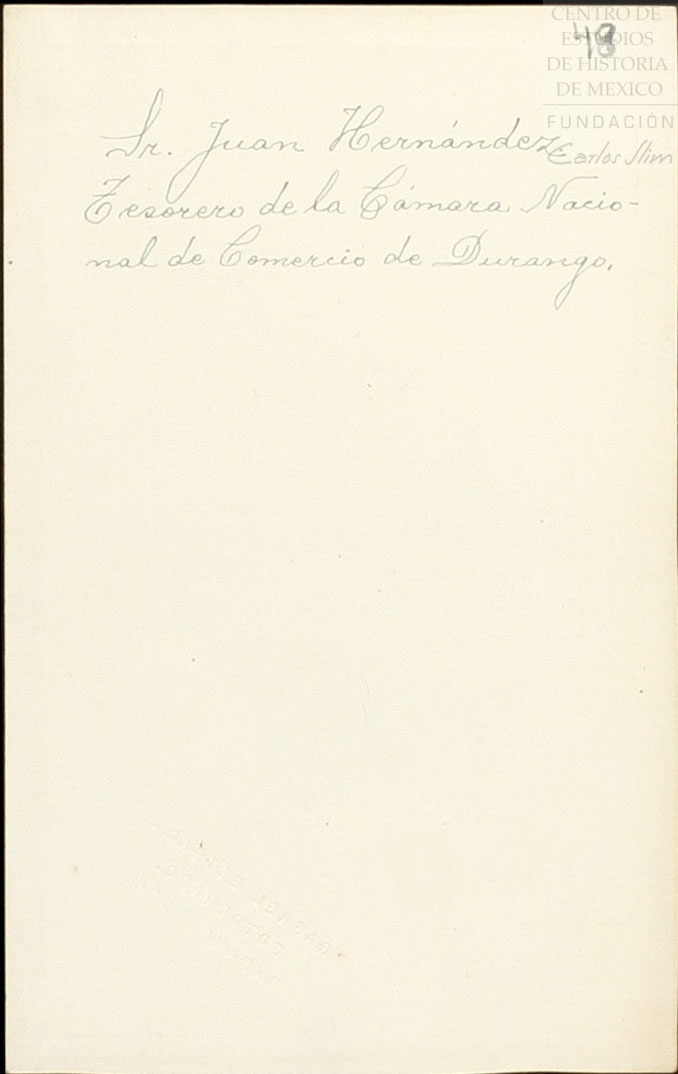 CENTRO DE
ESTUDIOS
DE HISTORIA
DE MEXICO
FUNDACIÓN
Carlos Slim
48
Sr. Juan Hernández
Tesorero de la Cámara Nacio-
nal de Comercio de Durango.